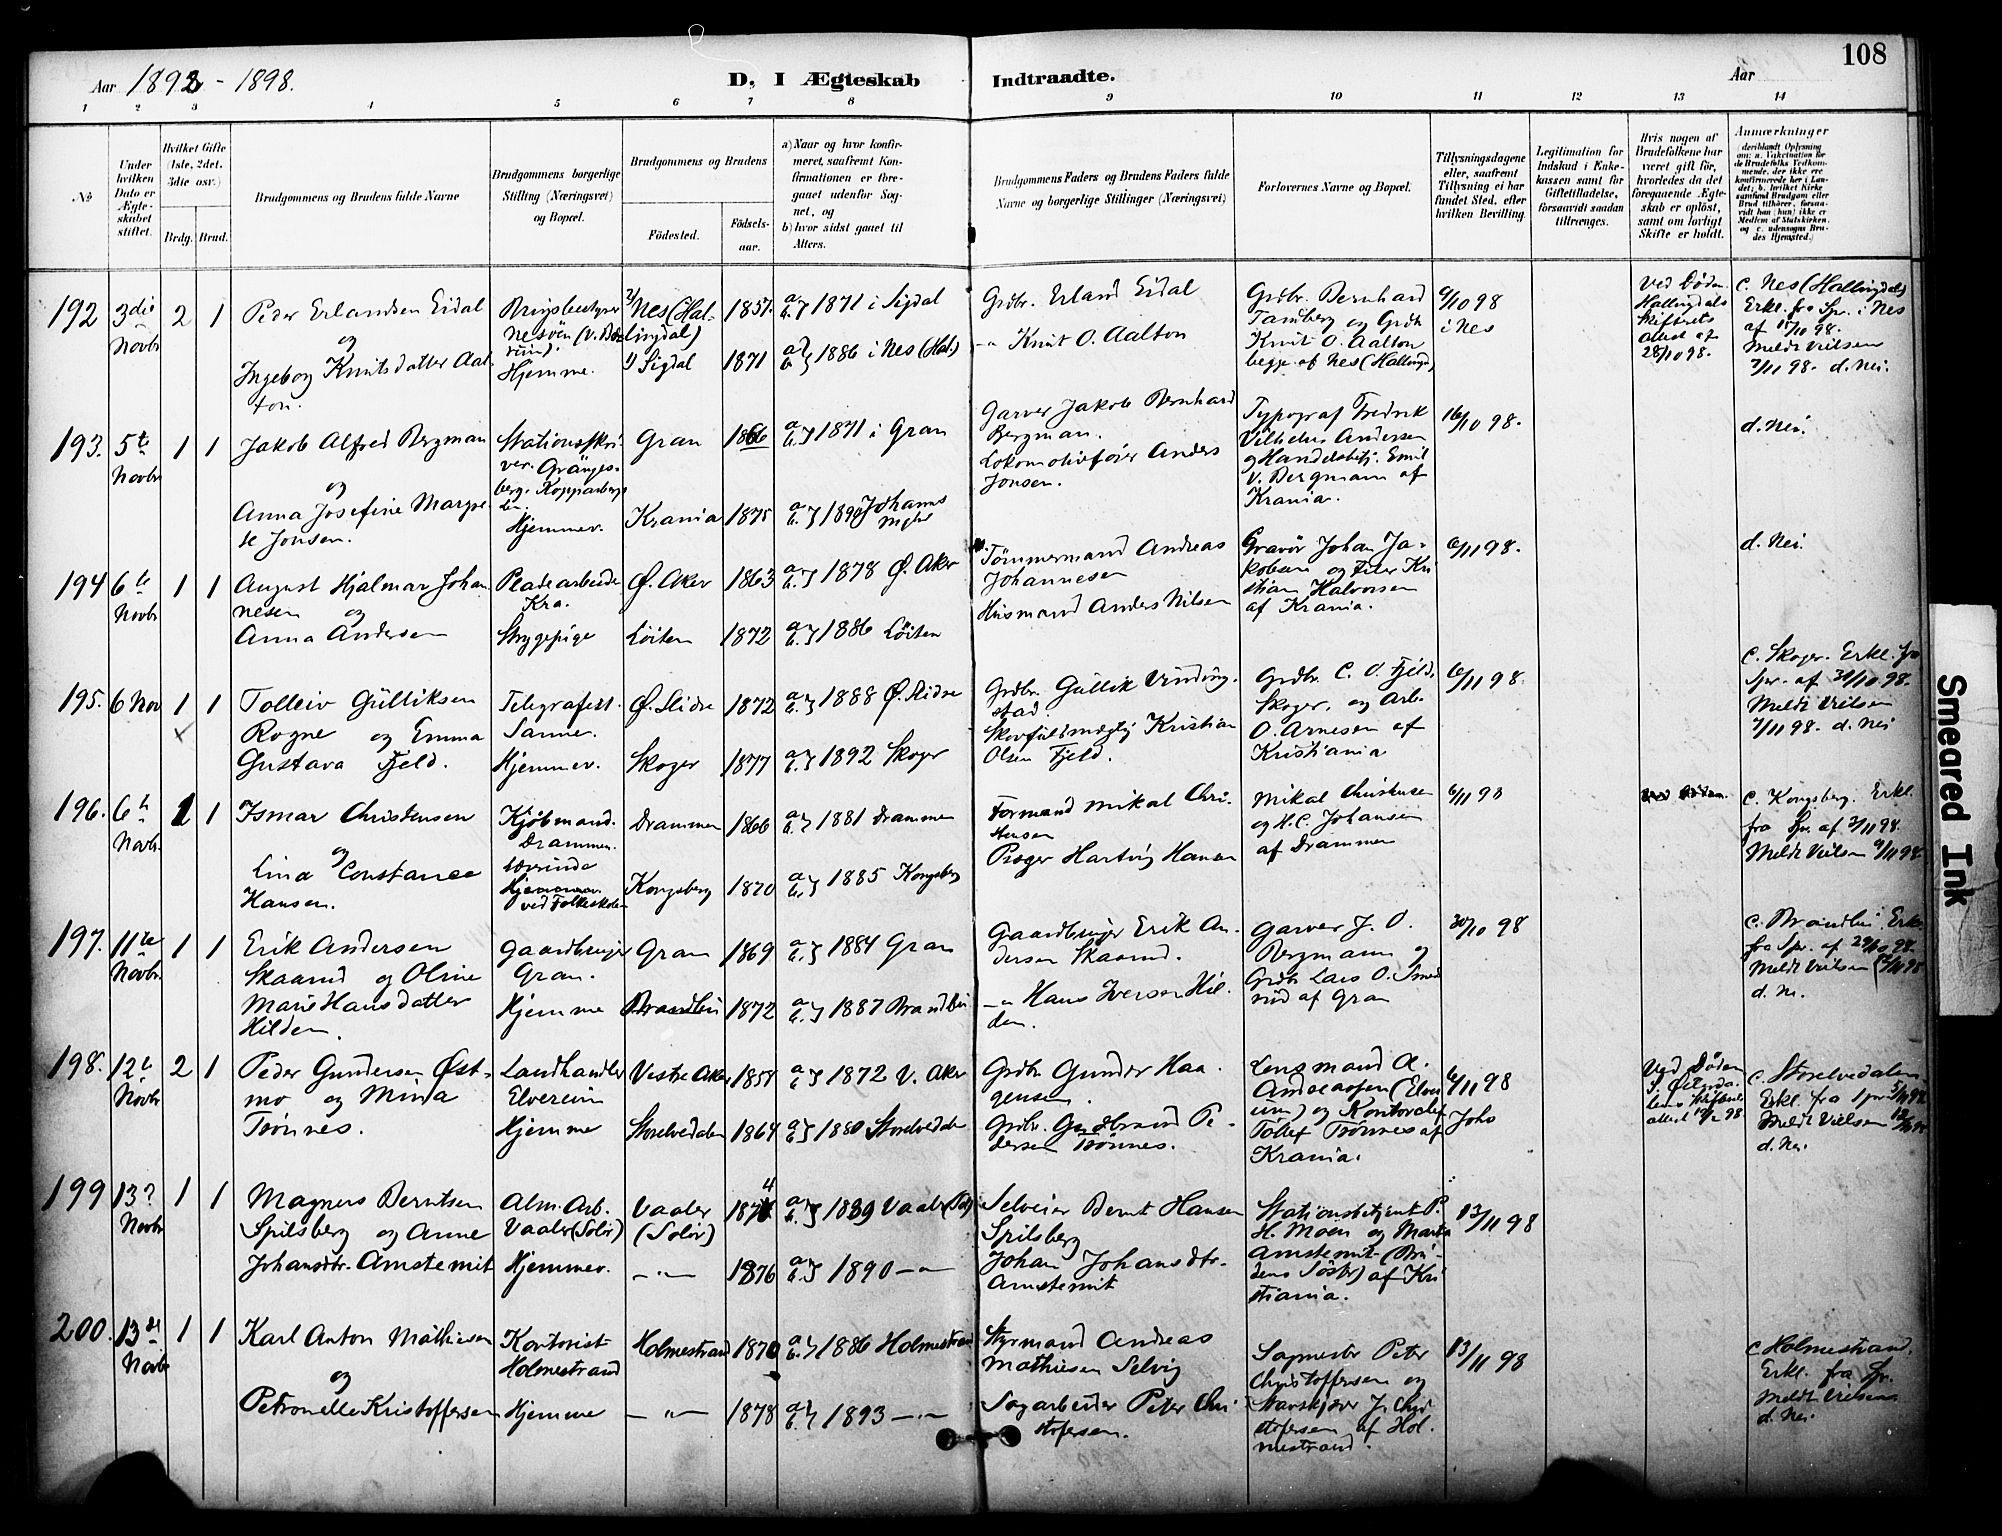 108
Aar 1898 - 1898.
D, I Ægteskab Indtraadte.
Aar
1 2 3 4 5 6 7 8 9 10 11 12 13 14
№
Under hvilken Dato er Ægteskabet stiftet.
Hvilket Gifte (1ste, 2det, 3die osv.)
Brdg. Brud.
Brudgommens og Brudens fulde Navne
Brudgommens borgerlige Stilling (Næringsvei) og Bopæl.
Brudgommens og Brudens
Fødested. Fødselsaar.
a) Naar og hvor konfirmeret, saafremt Konfirmationen er foregaaet udenfor Sognet, og
b) hvor sidst gaaet til Alters.
Brudgommens Faders og Brudens Faders fulde Navne og borgerlige Stillinger (Næringsvei)
Forlovernes Navne og Bopæl.
Tillysningsdagene eller, saafremt Tillysning ei har fundet Sted, efter hvilken Bevilling.
Legitimation for Indskud i Enkekassen samt for Giftetilladelse, forsaavidt saadan tiltrænges.
Hvis nogen af Brudefolkene har været gift før, hvorledes da det foregaaende Ægteskab er opløst, samt om lovligt Skifte er holdt.
Anmærkninger (deriblandt Oplysning om: a. Vakcination for de Brudefolks Vedkommende, der ikke ere konfirmerede her i Landet; b. hvilket Kirkesamfund Brudgom eller Brud tilhører, forsaavidt han (hun) ikke er Medlem af Statskirken, og c. udensogns Brudes Hjemsted.)
192 3die Novbr 2 1
Peder Erlandsen Eidal
og
Ingeborg Knutsdatter Aalton.
Nesøen
Hjemme.
2) Nes (Hallingdal) 1857. a b } 1871 i Sigdal
1) Sigdal 1871 a b } 1886 i Nes (Hal)
Grdbr. Erland Eidal
-"- Knut O. Aalton
Grdbr. Bernhard
Tandberg og Grdb
Knut O. Aalton
begge af Nes (Hallingd)
9/10 98
i Nes
Ved Døden.
Hallingdals
Skifterets
attest af
28/10 98.
c. Nes (Hallingdal)
Erkl. fra Spr. i Nes
af 15/10 98.
Meldt Vielsen
7/11 98. d. Nei.
193. 5te Novbr 1 1
Jakob Alfred Bergman
og
Anna Josefine Margrete Jonsen.
Stationsskriver. Grängesberg. Kopparbergs
Hjemmev.
Gran 1866 a b } 1871 i Gran
Krania 1875 a b } 1890 Johannes
Garver Jakob Bernhard
Bergman.
Lokomotivfører Anders
Jonsen.
Typograf Fredrik
Vilhelm Andersen
og Handelsbetj. Emil
V. Bergmann af
Krania.
16/10 98.
d. Nei.
194 6te Novbr 1 1
August Hjalmar Johannesen og
Anna Andersen
Pladearbeider
Kra.
Strygepige
Ø. Aker 1863 a b } 1878 Ø. Aker
Løiten 1872 a b } 1886 Løiten
Tømmermand Andreas
Johannesen
Husmand Anders Nilsen
Gravør Johan Jakobsen og Peter Kristian Halvorsen
af Krania.
6/11 98.
d. Nei.
195. 6 Nov 1 1
Tolleiv Gulliksen
Rogne og Emma
Gustava Fjeld.
Telegrafist.
Sanne.
Hjemmev.
Ø. Slidre 1872 a b } 1888 Ø. Slidre
Skoger 1877 a b } 1892 Skoger
Grdbr. Gullik Vindingstad.
Skovfuldmægtig Kristian
Olsen Fjeld.
Grdbr. C. O. Fjeld,
Skoger, og Arb.
O. Arnesen af
Kristiania
6/11 98
c. Skoger. Erkl. fra
Spr. af 31/10 98.
Meldt Vielsen
7/11 98. d. Nei
196. 6te Novbr. 1 1
Ismar Christensen
og
Lina Constance
Hansen.
Kjøbmand.
Drammen.
Lærerinde
Hjemmev.
ved Folkeskolen
Drammen 1866 a b } 1881 Drammen
Kongsberg 1870 a b } 1885 Kongsberg
Formand Mikal Christensen
Præger Hartvig Hansen
Mikal Christensen
og H.C. Johansen
af Drammen
6/11 98
c. Kongsberg. Erkl.
fra Spr. af 2/11 98.
Meldt Vielsen 9/11 98
197. 11te Novbr. 1 1
Erik Andersen
Skaarud og Oline
Marie Hansdatter
Hilden
Gaardbruger
Gran.
Hjemme
Gran 1869 a b } 1884 Gran
Brandbu 1872 a b } 1887 Brandbu
Gaardbruger Erik Andersen Skaarud.
-"- Hans Iversen Hilden.
Garver J. O.
Bergmann og
Grdb. Lars O. Smedrud af Gran
30/10 98
c. Brandbu. Erkl.
fra Spr. af 29/10 98.
Meldt Vielsen 15/11 98
d. Nei.
198. 12te Novbr. 2 1
Peder Gundersen Østmo og Mina
Tønnes.
Landhandler
Elverum
Hjemme
Vestre Aker 1857 a b } 1872 V. Aker
Storelvedalen 1864 a b } 1880 Storelvedalen
Grdbr Gunder Haagensen.
Grdbr. Gudbrand Pedersen Tønnes.
Lensmand A.
Andreassen (Elverum) og Kontorchef
Tollef Trønnes af
Krania.
6/11 98
Johs
Ved Døden
S. Østerdalens Skifteret.
attest 10/2 98
c. Storelvedalen
Erkl. fra Spr. 5/11 98
Meldt Vielsen
d. Nei.
199 13? Novbr. 1 1
Magnus Berntsen
Spilsberg og Anne
Johansdtr. Arnstemit
Alm. Arb.
Vaaler (Solør)
Hjemmev.
Vaaler (Solør) 1874 a b } 1889 Vaaler (Sol)
-"- 1876 a b } 1890 -"-
Selveier Bernt Hansen
Spilsberg
Johan Johansdtr.
Arnstemit
Stationsbetjent P.
H. Moen og Marta
Arnstemit (Brudens Søster) af Kristiania.
13/11 98
200. 13de Novbr 1 1
Karl Anton Mathiesen
og
Petronelle Kristoffersen
Kontorist
Holmestrand
Hjemme
Holmestrand 1870 a b } 1886 Holmestrand
-"- 1878 a b } 1893 -"-
Styrmand Andreas
Mathiesen Selvig
Sagarbeider Peter Christofersen.
Sagmester Peter
Christoffersen og
J. Christofersen af Holmestrand.
13/11 98
c Holmestrand.
Erkl. fra Spr.
Meldt Vielsen
d. Nei.
Smeared Ink